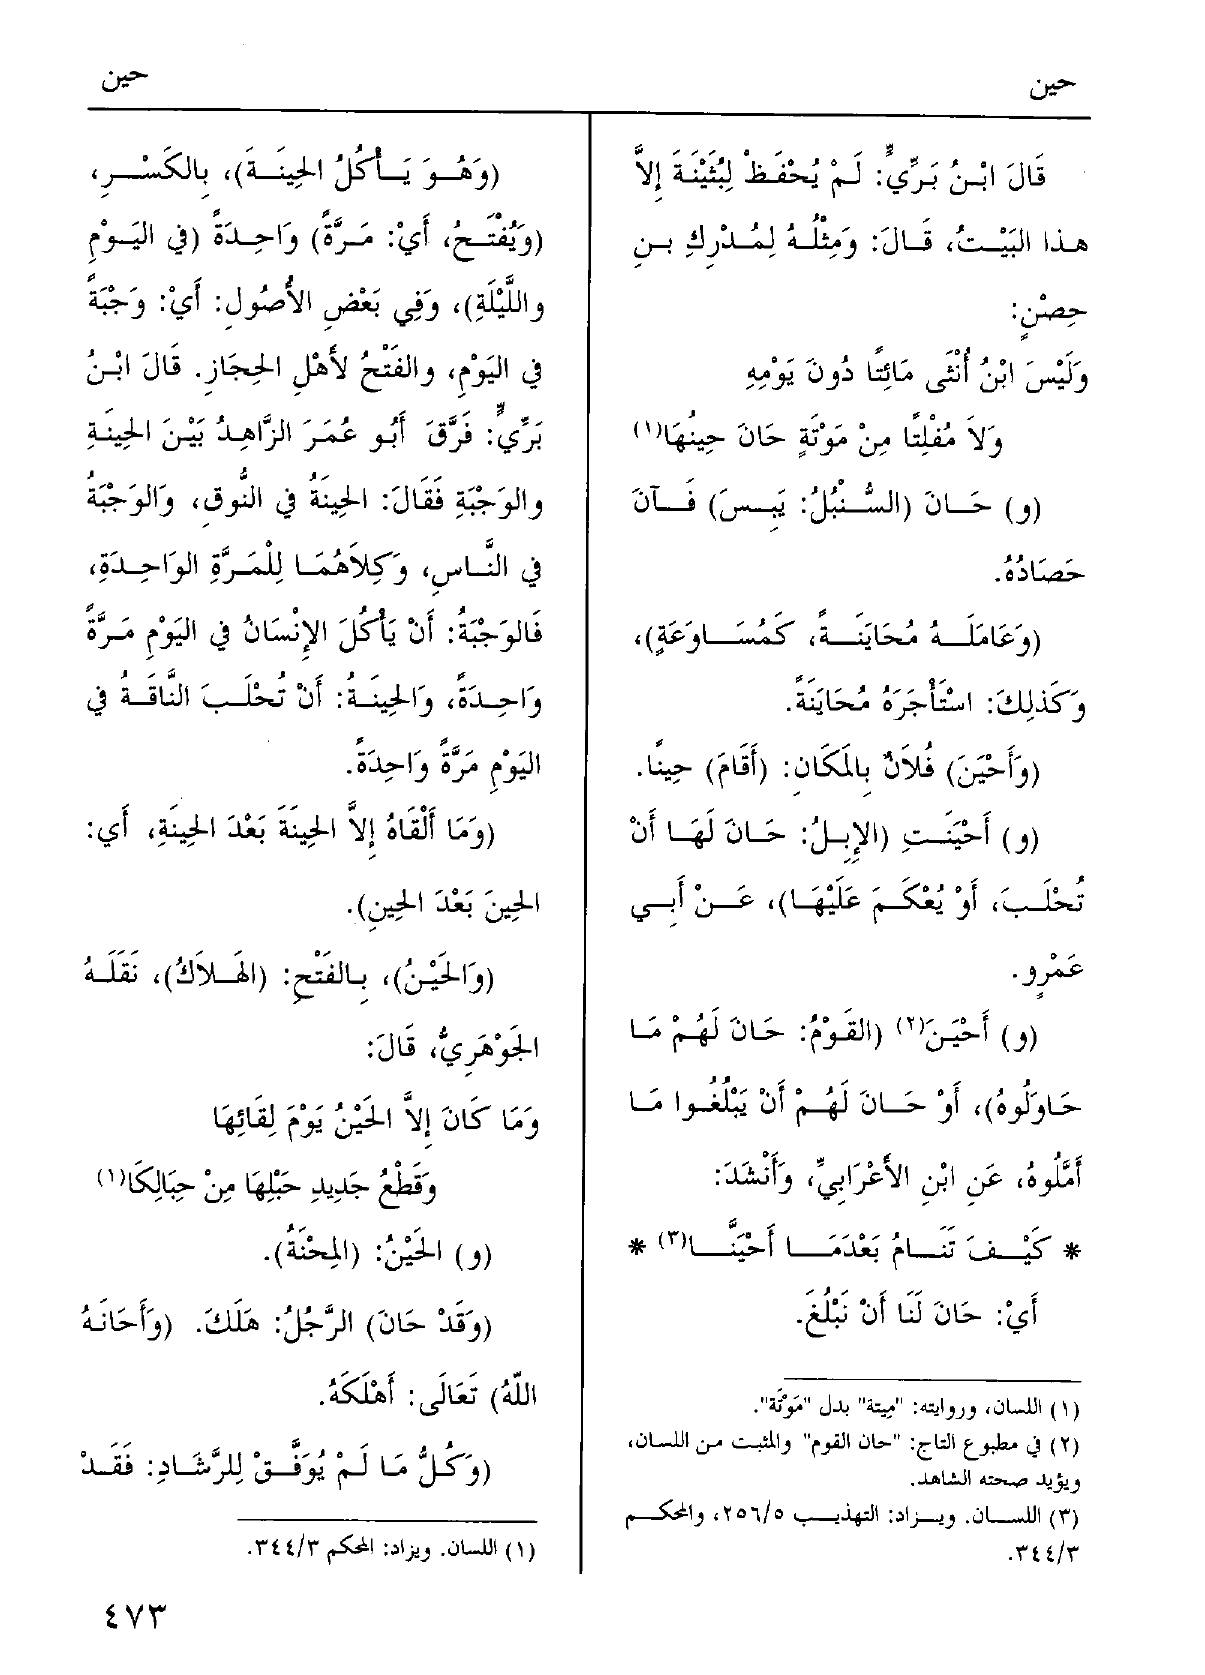 حين
حين
قَالَ ابْنُ بَرِّيٍّ: لَمْ يُحْفَظْ لِبُثَيْنَةَ إِلاَّ
هذا البَيْتُ، قَالَ: وَمِثْلُهُ لِمُدْرِكِ بنِ
حِصْنٍ:
وَلَيْسَ ابْنُ أُنْثَى مَائِتًا دُونَ يَوْمِهِ
وَلاَ مُفْلِتًا مِنْ مَوْتَةٍ حَانَ حِينُهَا(١)
(و) حَانَ (السُّنْبُلُ: يَبِسَ) فَآنَ
حَصَادُهُ.
(وَعَامَلَهُ مُحَايَنَةً، كَمُسَاوَعَةٍ)،
وَكَذلِكَ: اسْتَأْجَرَهُ مُحَايَنَةً.
(وَأَحْيَنَ) فُلاَنٌ بِالمَكَانِ: (أَقَامَ) حِينًا.
(و) أَحْيَنَتِ (الإِبِلُ: حَانَ لَهَا أَنْ
تُحْلَبَ، أَوْ يُعْكَمَ عَلَيْهَا)، عَنْ أَبِي
عَمْرٍو.
(و) أَحْيَنَ(٢) (القَوْمُ: حَانَ لَهُمْ مَا
حَاوَلُوهُ)، أَوْ حَانَ لَهُمْ أَنْ يَبْلُغُوا مَا
أَمَّلُوهُ، عَنِ ابْنِ الأَعْرَابِيِّ، وَأَنْشَدَ:
* كَيْفَ تَنَامُ بَعْدَمَا أَحْيَنَّا(٣) *
أَيْ: حَانَ لَنَا أَنْ نَبْلُغَ.
(١) اللسان، وروايته: "مِيتة" بدل "مَوْتَة".
(٢) في مطبوع التاج: "حان القوم" والمثبت من اللسان،
ويؤيد صحته الشاهد.
(٣) اللسان. ويزاد: التهذيب ٢٥٦/٥، والمحكم
٣٤٤/٣.
(وَهُوَ يَأكُلُ الحِينَةَ)، بِالكَسْرِ،
(وَيُفْتَحُ، أَيْ: مَرَّةً) وَاحِدَةً (في اليَوْمِ
واللَّيْلَةِ)، وَفِي بَعْضِ الأُصُولِ: أَيْ: وَجْبَةً
في اليَوْمِ، والفَتْحُ لأَهْلِ الحِجَازِ. قَالَ ابْنُ
بَرِّيٍّ: فَرَّقَ أَبُو عُمَرَ الزَّاهِدُ بَيْنَ الحِينَةِ
والوَجْبَةِ فَقَالَ: الحِينَةُ في النُّوقِ، وَالوَجْبَةُ
في النَّاسِ، وَكِلاَهُمَا لِلْمَرَّةِ الوَاحِدَةِ،
فَالوَجْبَةُ: أَنْ يَأكُلَ الإِنْسَانُ في اليَوْمِ مَرَّةً
وَاحِدَةً، وَالحِينَةُ: أَنْ تُحْلَبَ النَّاقَةُ في
اليَوْمِ مَرَّةً وَاحِدَةً.
(وَمَا أَلْقَاهُ إِلاَّ الحِينَةَ بَعْدَ الحِينَةِ، أَي:
الحِينَ بَعْدَ الحِينِ).
(وَالحَيْنُ)، بِالفَتْحِ: (الهَلاَكُ)، نَقَلَهُ
الجَوْهَرِيُّ، قَالَ:
وَمَا كَانَ إِلاَّ الحَيْنُ يَوْمَ لِقَائِهَا
وَقَطْعُ جَدِيدِ حَبْلِهَا مِنْ حِبَالِكَا(١)
(و) الحَيْنُ: (المِحْنَةُ).
(وَقَدْ حَانَ) الرَّجُلُ: هَلَكَ. (وَأَحَانَهُ
اللَّهُ) تَعَالَى: أَهْلَكَهُ.
(وَكُلُّ مَا لَمْ يُوَفَّقْ لِلرَّشَادِ: فَقَدْ
(١) اللسان. ويزاد: المحكم ٣٤٤/٣.
٤٧٣